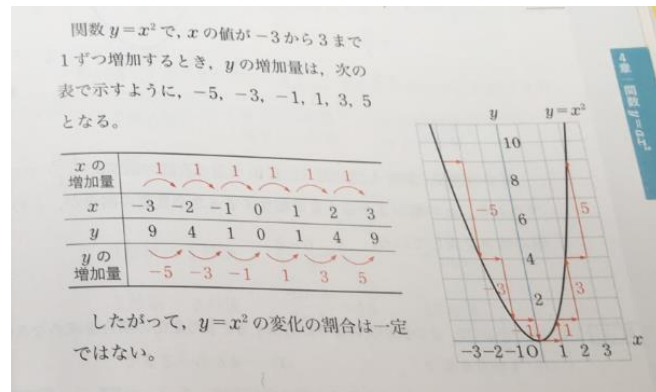 関数 y=x²で, xの値が −3から3まで
1ずつ増加するとき, yの増加量は, 次の
表で示すように, −5, −3, −1, 1, 3, 5
となる。
xの
増加量
1 1 1 1 1 1
x −3 −2 −1 0 1 2 3
y 9 4 1 0 1 4 9
yの
増加量
−5 −3 −1 1 3 5
したがって, y=x²の変化の割合は一定
ではない。
y y=x²
10
8
−5 6 5
4
−3 2 3
−1 1
−3−2−1O 1 2 3 x
4章 関数 y=ax²